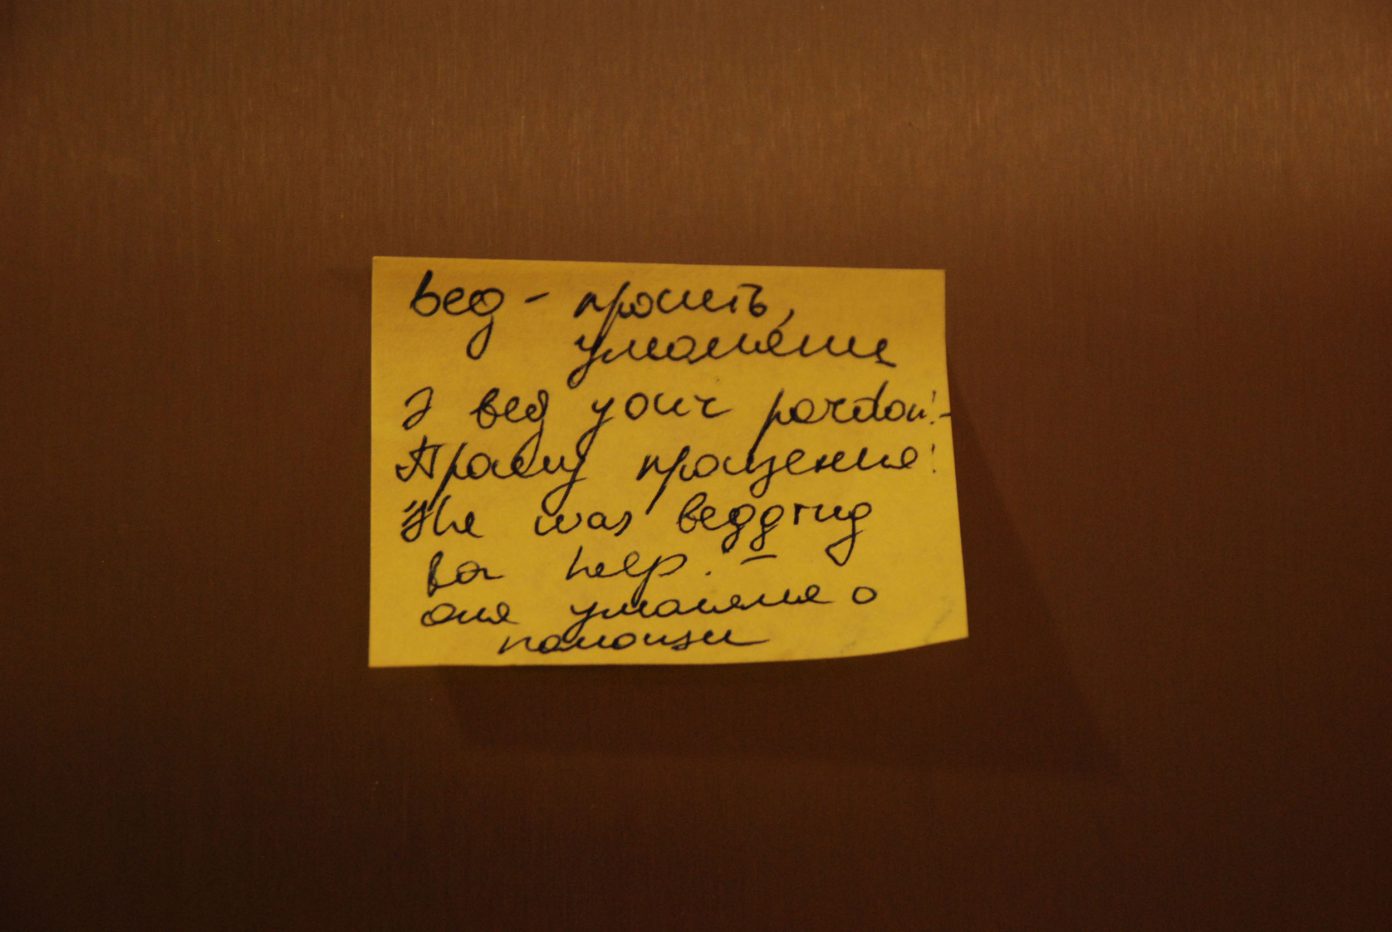 beg - просить,
умолять
I beg your pardon! -
Прошу прощения!
She was begging
for help. -
Она умоляла о
помощи